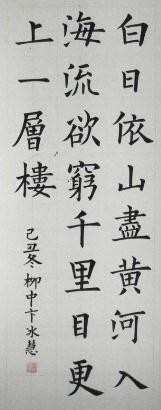 白日依山盡黃河入
海流欲窮千里目更
上一層樓
己丑冬柳中卞冰慧